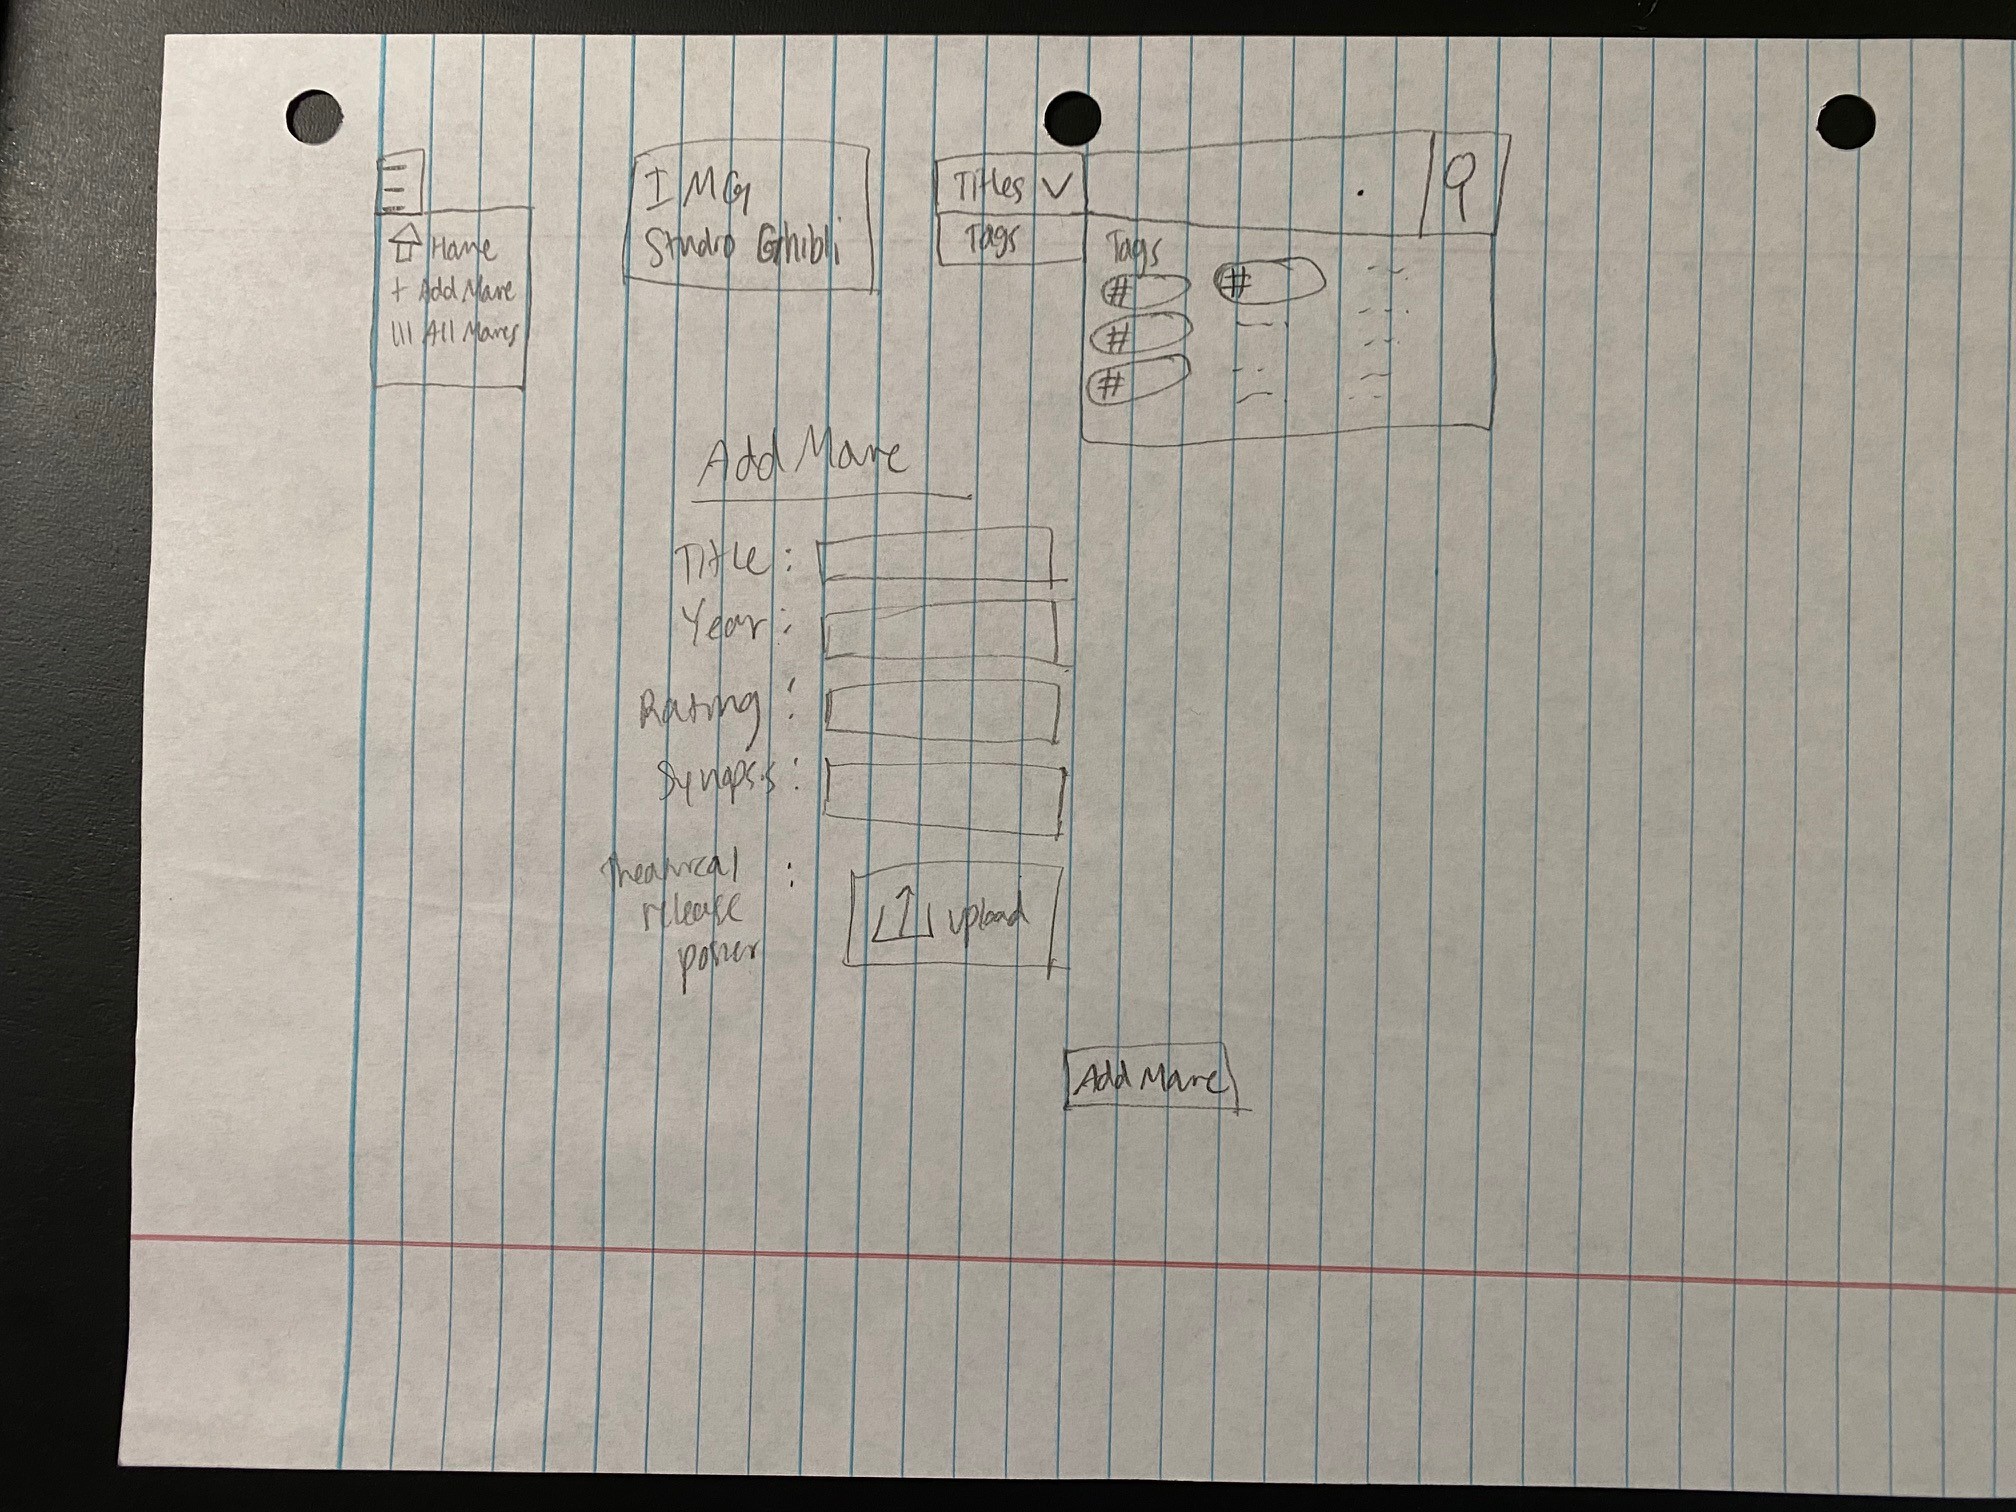 Home
+ Add Movie
All Movies
IMG
Studio Ghibli
Titles
Tags
Tags
#
#
#
#
Add Movie
Title:
Year:
Rating:
Synopsis:
Theatrical :
release
poster
upload
Add Movie